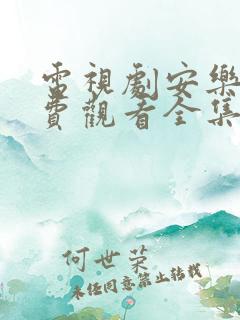 電視劇安樂
費觀看全集
何世荣
未经同意禁止转载